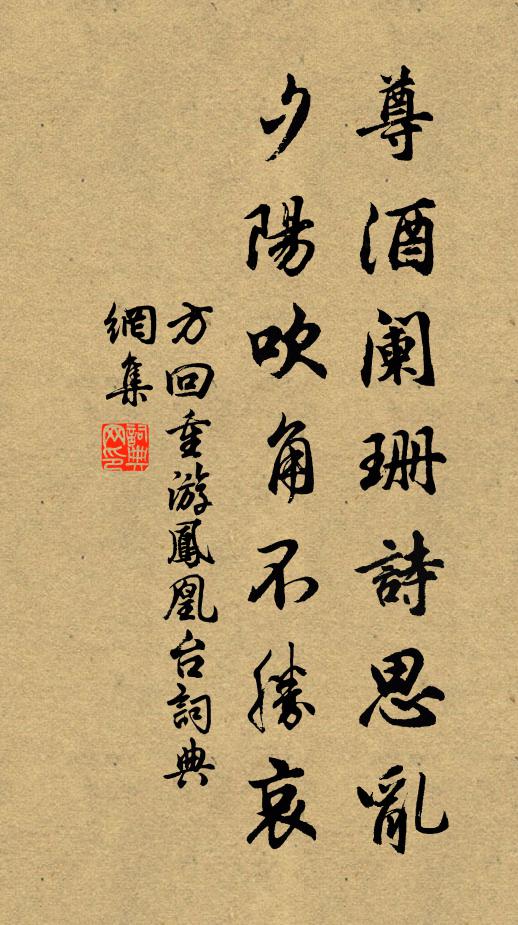 尊酒闌珊詩思亂
夕陽吹角不勝哀
方回重游鳳凰台詞典
網集
詞典
网印